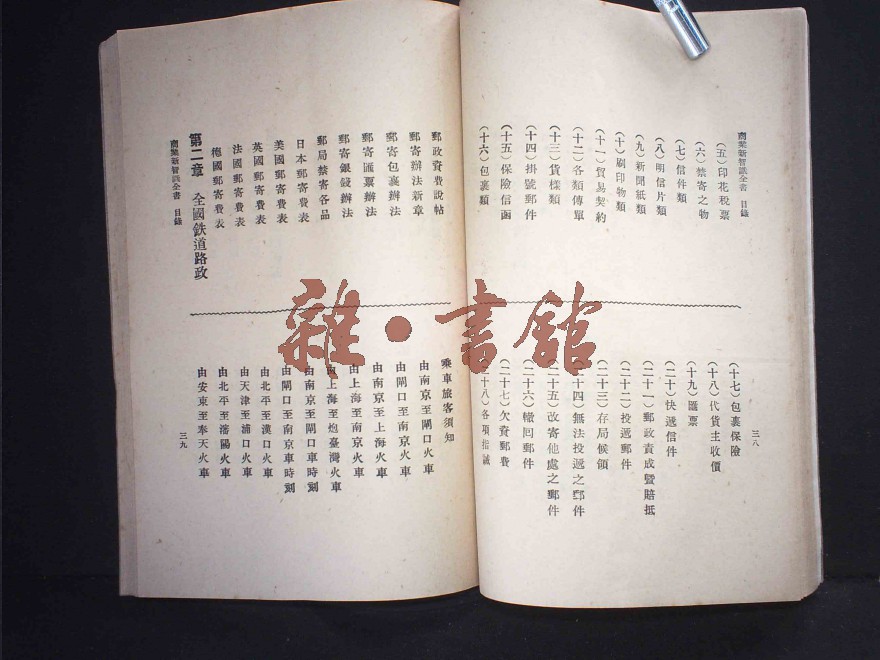 商業新智識全書 目錄
(五)印花稅票
(六)禁寄之物
(七)信件類
(八)明信片類
(九)新聞紙類
(十)刷印物類
(十一)貿易契約
(十二)各類傳單
(十三)貨樣類
(十四)掛號郵件
(十五)保險信函
(十六)包裹類
三八
(十七)包裹保險
(十八)代貨主收價
(十九)匯票
(二十)快遞信件
(二十一)郵政責成暨賠抵
(二十二)投遞郵件
(二十三)存局候領
(二十四)無法投遞之郵件
(二十五)改寄他處之郵件
(二十六)轍囘郵件
(二十七)欠資郵費
(二十八)各項指誡
郵政資費說帖
郵寄辦法新章
郵寄包裹辦法
郵寄匯票辦法
郵寄銀錢辦法
郵局禁寄各品
日本郵寄費表
美國郵寄費表
英國郵寄費表
法國郵寄費表
德國郵寄費表
第二章 全國鉄道路政
商業新智識全書 目錄
乘車旅客須知
由南京至閘口火車
由閘口至南京火車
由南京至上海火車
由上海至南京火車
由上海至炮臺灣火車
由南京至閘口車時刻
由閘口至南京車時刻
由北平至漢口火車
由天津至浦口火車
由北平至瀋陽火車
由安東至奉天火車
三九
雜·書館